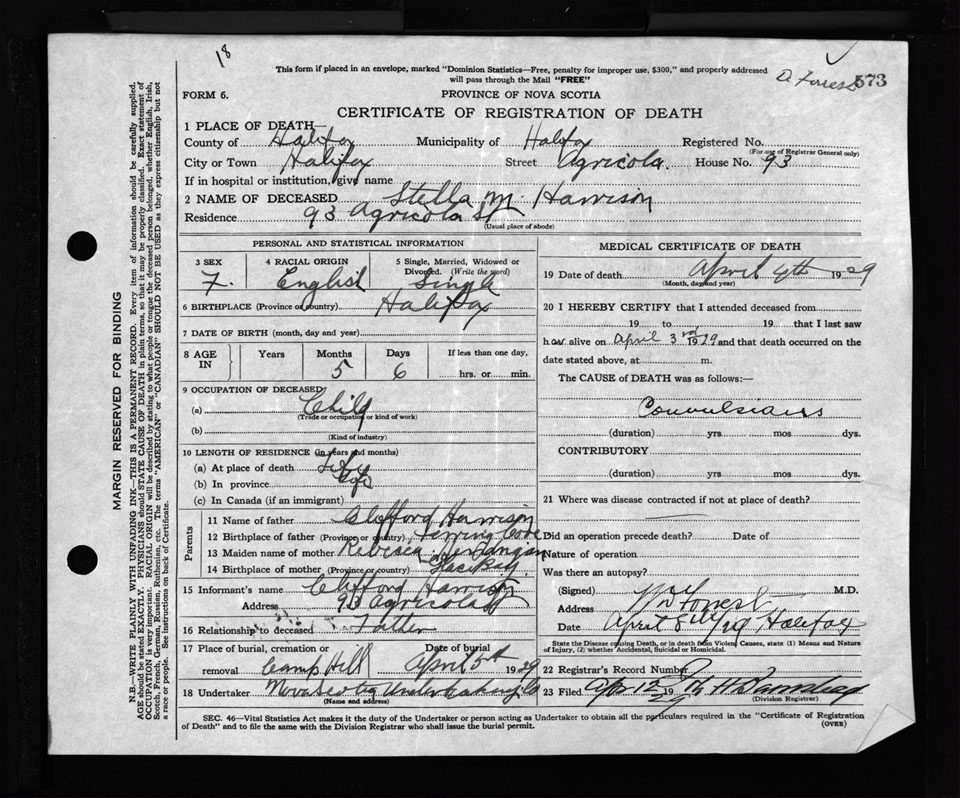 18
This form if placed in an envelope, marked "Dominion Statistics—Free, penalty for improper use, $300," and properly addressed
will pass through the Mail "FREE"
D. Forrest 573
FORM 6.
PROVINCE OF NOVA SCOTIA
CERTIFICATE OF REGISTRATION OF DEATH
1 PLACE OF DEATH—
County of Halifax Municipality of Halifax Registered No.
(For use of Registrar General only)
City or Town Halifax Street Agricola. House No. 93
If in hospital or institution, give name
2 NAME OF DECEASED Stella M. Harrison
Residence 93 Agricola St
(Usual place of abode)
PERSONAL AND STATISTICAL INFORMATION
3 SEX 4 RACIAL ORIGIN 5 Single, Married, Widowed or
Divorced. (Write the word)
F. English Single
6 BIRTHPLACE (Province or country) Halifax
7 DATE OF BIRTH (month, day and year)
8 AGE IN Years Months Days If less than one day,
5 6 hrs. or min.
9 OCCUPATION OF DECEASED
(a) Child
(Trade or occupation or kind of work)
(b)
(Kind of industry)
10 LENGTH OF RESIDENCE (in years and months)
(a) At place of death Life
(b) In province Life
(c) In Canada (if an immigrant)
Parents
11 Name of father Clifford Harrison
12 Birthplace of father (Province or country) Herring Cove
13 Maiden name of mother Rebecca
14 Birthplace of mother (Province or country)
15 Informant's name Clifford Harrison
Address 93 Agricola St
16 Relationship to deceased Father
17 Place of burial, cremation or Date of burial
removal Camp Hill April 5th 1929
18 Undertaker Nova Scotia Undertaking Co
(Name and address)
MEDICAL CERTIFICATE OF DEATH
19 Date of death April 4th 1929
(Month, day and year)
20 I HEREBY CERTIFY that I attended deceased from
19 to 19 that I last saw
her alive on April 3rd 1929 and that death occurred on the
date stated above, at m.
The CAUSE of DEATH was as follows:—
Convulsions
(duration) yrs mos dys.
CONTRIBUTORY
(duration) yrs. mos dys.
21 Where was disease contracted if not at place of death?
Did an operation precede death? Date of
Nature of operation
Was there an autopsy?
(Signed) Forrest M.D.
Address
Date April 8th/29 Halifax
State the Disease causing Death, or in death from Violent Causes, state (1) Means and Nature
of Injury, (2) whether Accidental, Suicidal or Homicidal.
22 Registrar's Record Number
23 Filed Apr 12 1929
(Division Registrar)
SEC. 46—Vital Statistics Act makes it the duty of the Undertaker or person acting as Undertaker to obtain all the particulars required in the "Certificate of Registration
of Death" and to file the same with the Division Registrar who shall issue the burial permit.
(OVER)
MARGIN RESERVED FOR BINDING
N.B.—WRITE PLAINLY WITH UNFADING INK—THIS IS A PERMANENT RECORD. Every item of information should be carefully supplied.
AGE should be stated EXACTLY. PHYSICIANS should STATE CAUSE OF DEATH in plain terms, so that it may be properly classified. Exact statement of
OCCUPATION is very important. RACIAL ORIGIN will be described by stating to what people or tongue the deceased person belonged, whether English, Irish,
Scotch, French, German, Russian, Ruthenian, etc. The terms "AMERICAN" or "CANADIAN" SHOULD NOT BE USED as they express citizenship but not
a race or people. See instructions on back of Certificate.